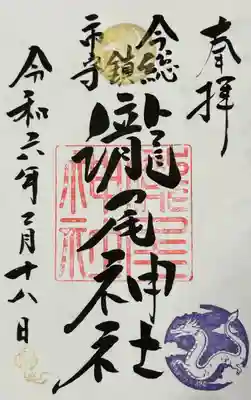 奉拝
今市
総鎮守
瀧尾神社
瀧尾神社
令和六年二月十八日